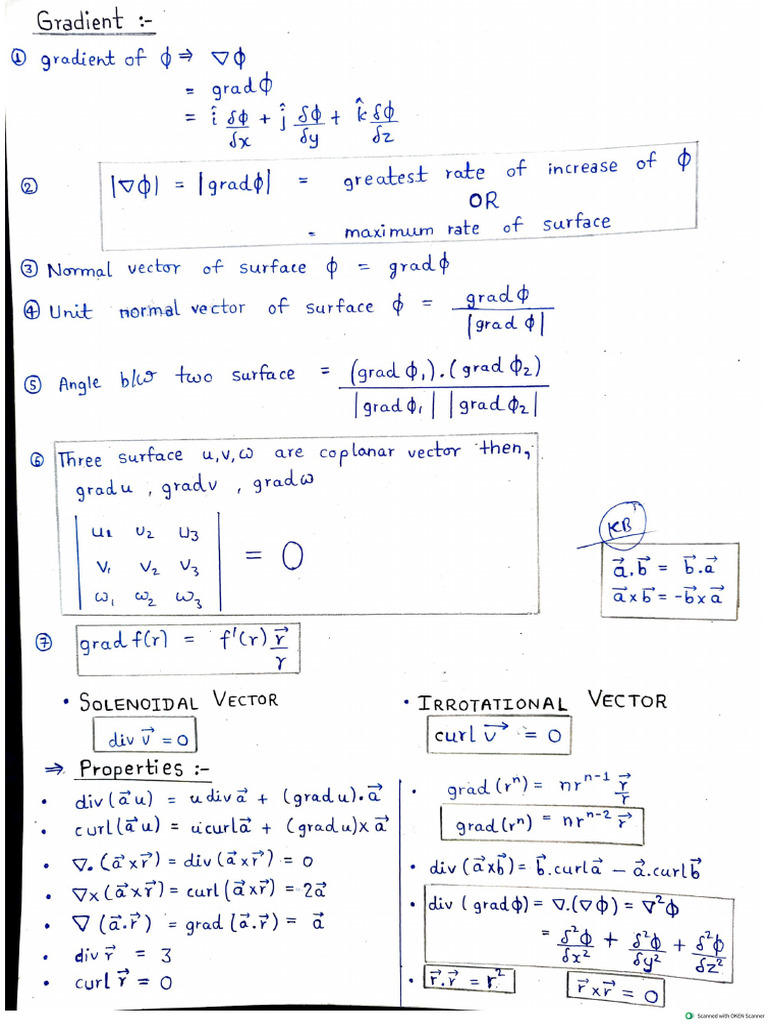 Gradient :-
① gradient of ϕ ⇒ ∇ϕ
= gradϕ
= î δϕ/δx + ĵ δϕ/δy + k̂ δϕ/δz
② |∇ϕ| = |gradϕ| = greatest rate of increase of ϕ
OR
= maximum rate of surface
③ Normal vector of surface ϕ = gradϕ
④ Unit normal vector of surface ϕ = gradϕ / |grad ϕ|
⑤ Angle b/w two surface = (grad ϕ₁).(grad ϕ₂) / |gradϕ₁| |gradϕ₂|
⑥ Three surface u,v,ω are coplanar vector then,
gradu , gradv , gradω
| u₁ u₂ u₃ |
| v₁ v₂ v₃ | = 0
| ω₁ ω₂ ω₃ |
KB
a⃗.b⃗ = b⃗.a⃗
a⃗×b⃗ = -b⃗×a⃗
⑦ grad f(r) = f'(r) r⃗/r
• SOLENOIDAL VECTOR
div v⃗ = 0
• IRROTATIONAL VECTOR
curl v⃗ = 0
⇒ Properties :-
• div(a⃗u) = u div a⃗ + (grad u).a⃗
• curl(a⃗u) = u curl a⃗ + (grad u)×a⃗
• ∇.(a⃗×r⃗) = div(a⃗×r⃗) = 0
• ∇×(a⃗×r⃗) = curl(a⃗×r⃗) = 2a⃗
• ∇(a⃗.r⃗) = grad(a⃗.r⃗) = a⃗
• div r⃗ = 3
• curl r⃗ = 0
• grad(rⁿ) = nrⁿ⁻¹ r⃗/r
grad(rⁿ) = nrⁿ⁻² r⃗
• div(a⃗×b⃗) = b⃗.curl a⃗ − a⃗.curl b⃗
• div(gradϕ) = ∇.(∇ϕ) = ∇²ϕ
= δ²ϕ/δx² + δ²ϕ/δy² + δ²ϕ/δz²
• r⃗.r⃗ = r² r⃗×r⃗ = 0
Scanned with OKEN Scanner